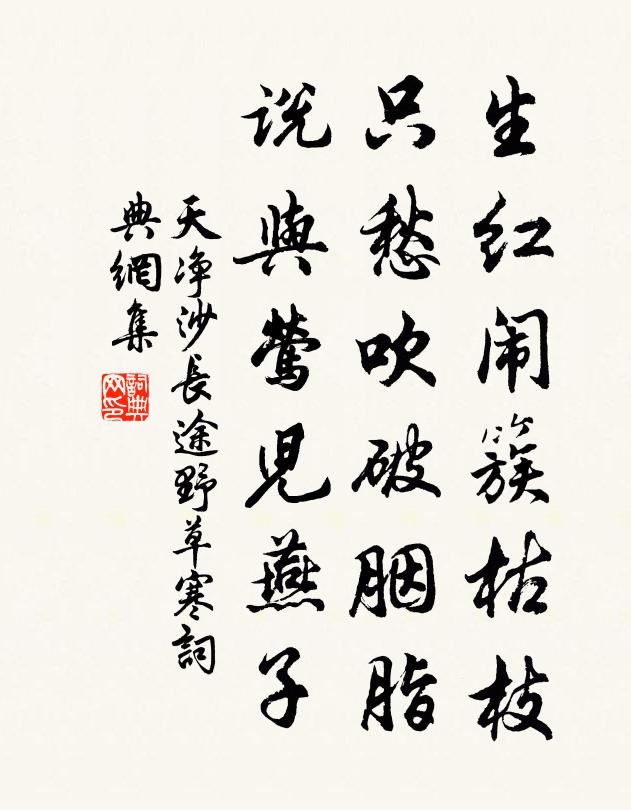 生红闹簇枯枝
只愁吹破胭脂
说與莺児燕子
天净沙長途野草寒詞
典網集
詞典
网印